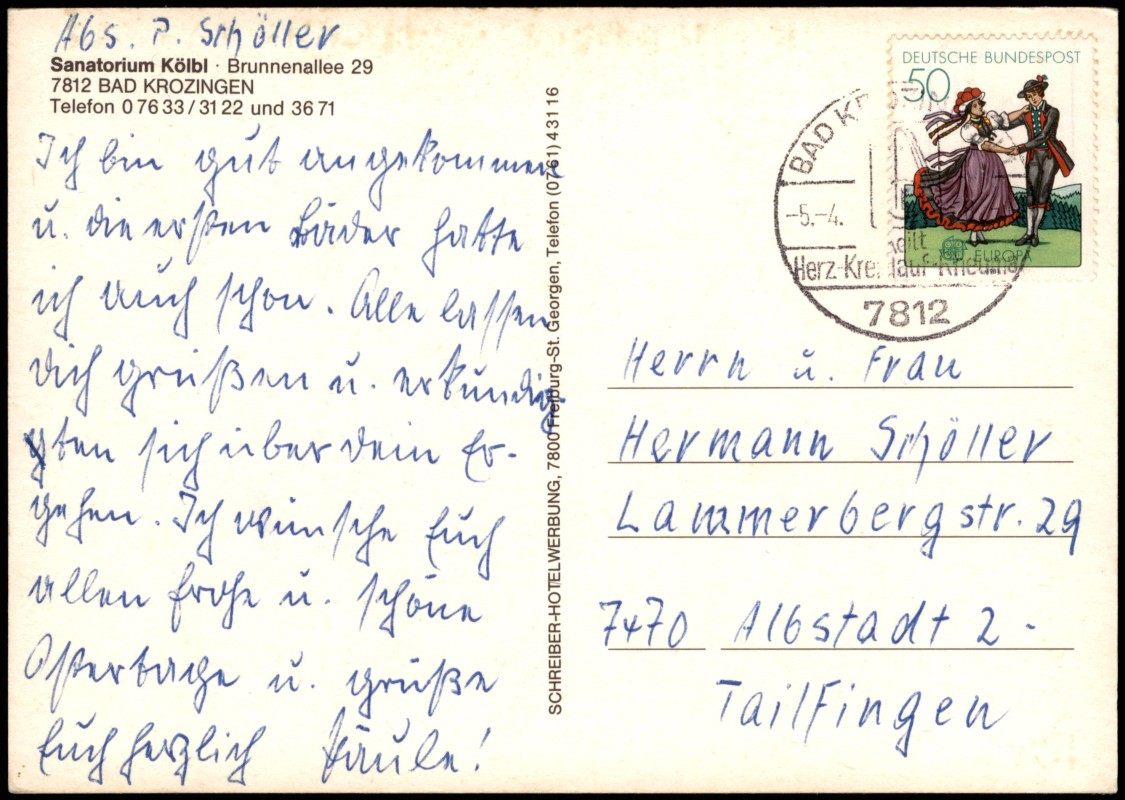 Abs. P. Schöller
Sanatorium Kölbl · Brunnenallee 29
7812 BAD KROZINGEN
Telefon 0 76 33 / 31 22 und 36 71
Ich bin gut angekommen
u. die ersten Bäder hatte
ich auch schon. Alle lassen
dich grüßen u. erkundig-
ten sich über dein Er-
gehen. Ich wünsche Euch
allen frohe u. schöne
Ostertage u. grüße
Euch herzlich Päule!
SCHREIBER-HOTELWERBUNG, 7800 Freiburg-St. Georgen, Telefon (07 61) 4 31 16
DEUTSCHE BUNDESPOST
50
EUROPA
BAD
-5.-4.
heilt
Herz-Kreislauf-Rheuma
7812
Herrn u. Frau
Hermann Schöller
Lammerbergstr. 29
7470 Albstadt 2 -
Tailfingen